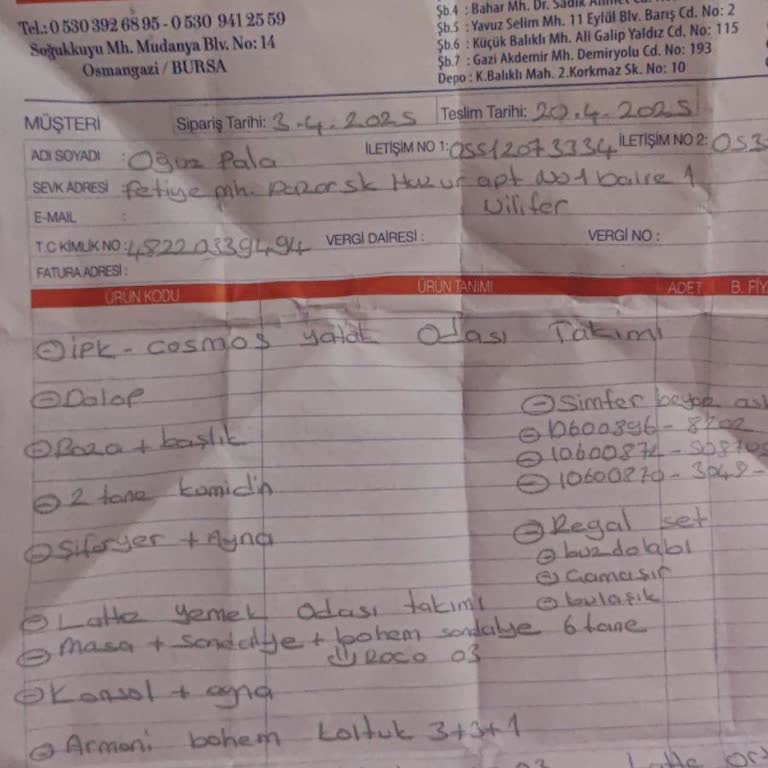 Tel.: 0 530 392 68 95 - 0 530 941 25 59
Soğukkuyu Mh. Mudanya Blv. No: 14
Osmangazi / BURSA
Şb.4 : Bahar Mh. Dr. Sadık Ahmet
Şb.5 : Yavuz Selim Mh. 11 Eylül Blv. Barış Cd. No: 2
Şb.6 : Küçük Balıklı Mh. Ali Galip Yaldız Cd. No: 115
Şb.7 : Gazi Akdemir Mh. Demiryolu Cd. No: 193
Depo : K.Balıklı Mah. 2.Korkmaz Sk. No: 10
MÜŞTERİ Sipariş Tarihi: 3.4.2025 Teslim Tarihi: 20.4.2025
ADI SOYADI : Oğuz Pala İLETİŞİM NO 1: 05512073334 İLETİŞİM NO 2: 053
SEVK ADRESİ fetiye mh. pazar sk Huzur apt no 1 daire 1
nilüfer
E-MAIL :
T.C KİMLİK NO : 48220339494 VERGİ DAİRESİ : VERGİ NO :
FATURA ADRESİ :
ÜRÜN KODU ÜRÜN TANIMI ADET B. FİY
ipk - cosmos yatak odası Takımı
Dolap
Baza + başlık
2 tane komidin
Şifonyer + Ayna
Simfer beyaz
10600896 - 8202
10600874 -
10600870 - 3049 -
Regal set
buzdolabı
Çamaşır
bulaşık
Latte yemek odası takımı
masa + sandalye + bohem sandalye 6 tane
Roco 03
Konsol + ayna
Armoni bohem koltuk 3+3+1
03 Latte